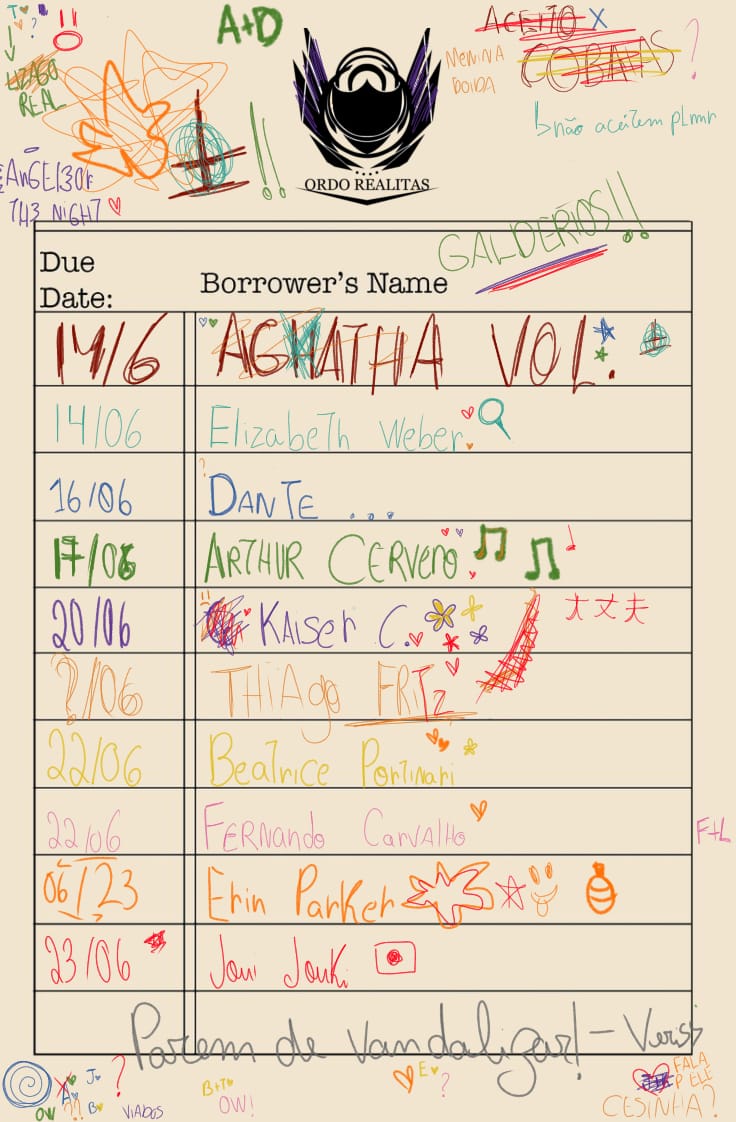 T
?
!!
A+D
ACEITO X
COBAIAS ?
MENINA
DOIDA
REAL
↳ não aceitem plmr
!!
ORDO REALITAS
ANGEL3 Of
7H3 NIGHT
GALDERIOS!!
Due
Date:
Borrower's Name
14/6 AGHATHA VOL.
14/06 Elizabeth Weber
16/06 DANTE ...
17/06 ARTHUR CERVERO
20/06 KAISER C. 大丈夫
?/06 THIAgo FRITZ
22/06 Beatrice Portinari
22/06 FERNANDO CARVALHO
F+L
06/23 Erin Parker
23/06 Joui Jouki
Parem de vandalizar! - Veríssi
J
?
A
OW ?? B
VIADOS
B+T
OW!
E
?
FALA
P ELE
CESINHA?